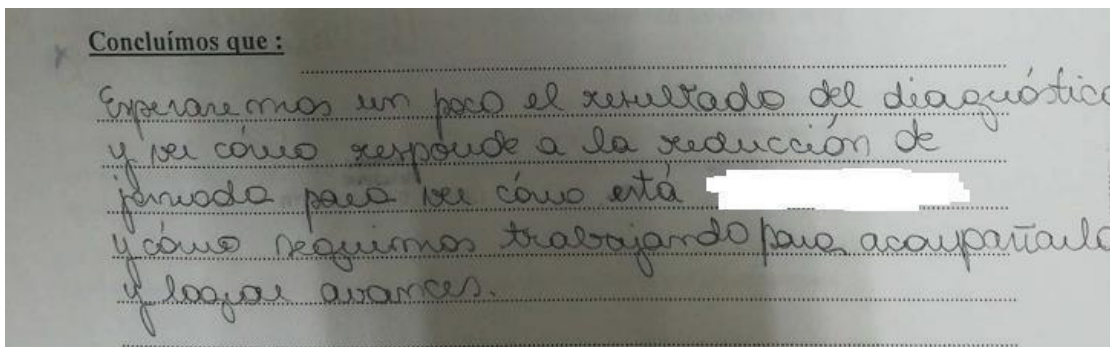 Concluímos que :
Esperaremos un poco el resultado del diagnóstico
y ver cómo responde a la reducción de
jornada para ver cómo está
y cómo seguimos trabajando para acompañarlo
y lograr avances.